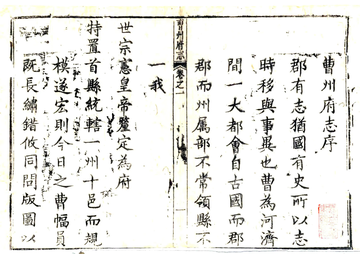 曹州府志序
郡有志猶國有史所以志
時移與事異也曹為河濟
間一大都會自古國而郡
郡而州属部不常領縣不
曹州府志
卷之一
一我
世宗憲皇帝鑒定為府
特置首縣統轄一州十邑而規
模遂宏則今日之曹幅員
既長繡錯攸同問版圖以